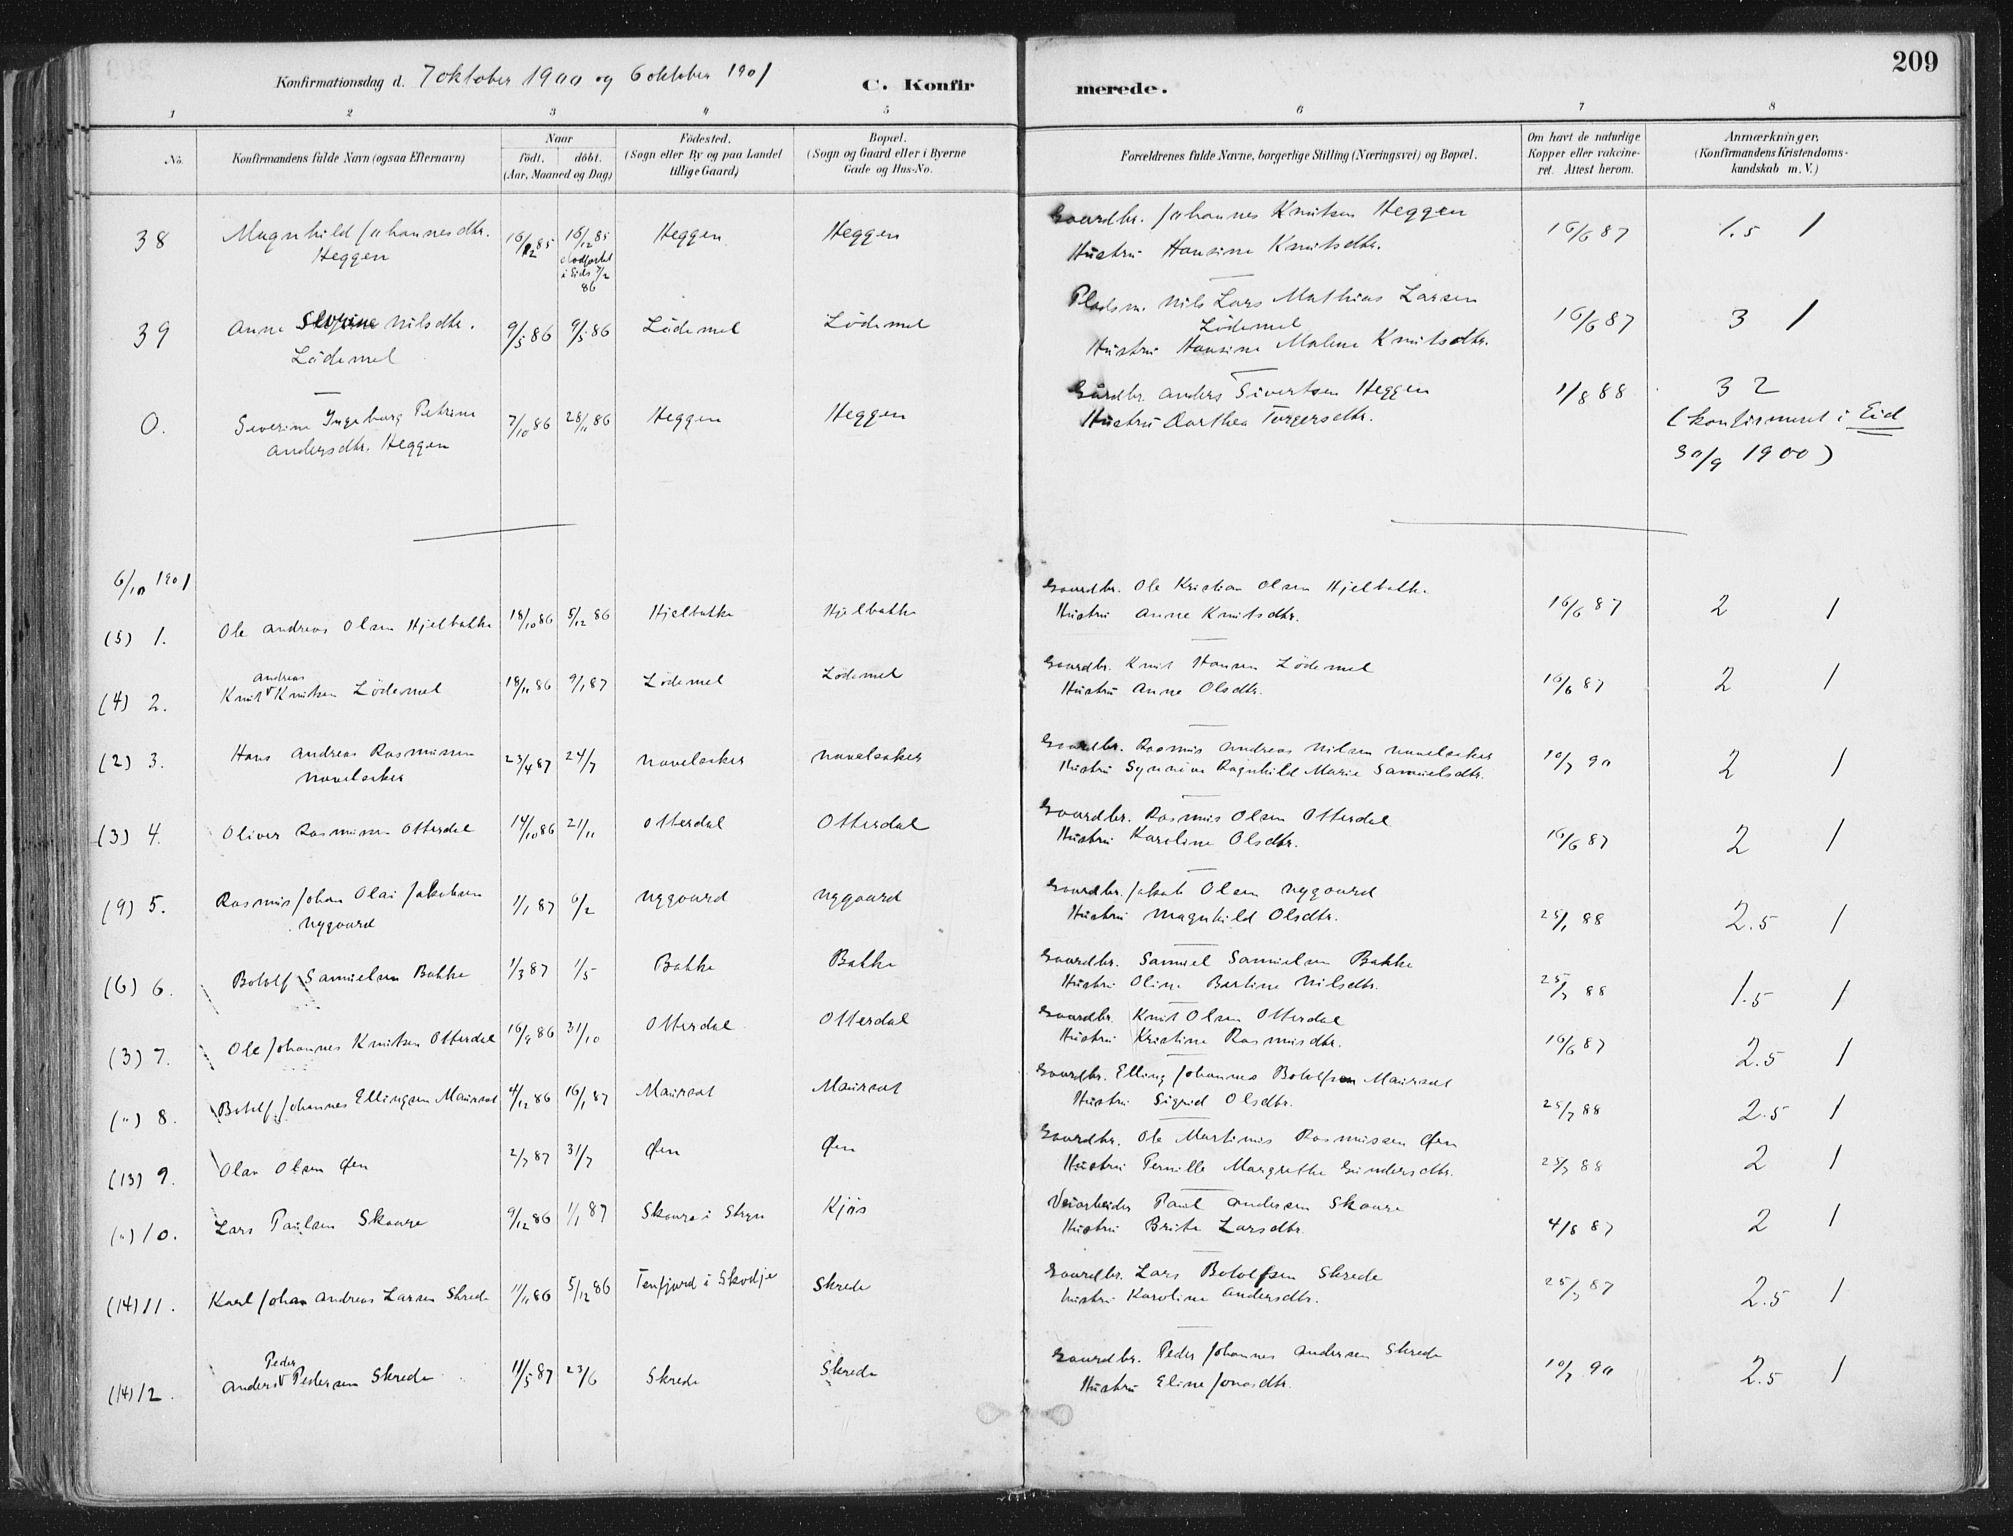 209
Konfirmationsdag d. 7 oktober 1900 og 6 oktober 1901 C. Konfirmerede.
1 2 3 4 5 6 7 8
No. Konfirmandens fulde Navn (ogsaa Efternavn) Naar født. døbt. (Aar, Maaned og Dag) Fødested. (Sogn eller By og paa Landet tillige Gaard) Bopæl. (Sogn og Gaard eller i Byerne Gade og Hus-No. Forældrenes fulde Navne, borgerlige Stilling (Næringsvei) og Bopæl. Om havt de naturlige Kopper eller vakcineret. Attest herom. Anmærkninger. (Konfirmandens Kristendomskundskab m. V.)
38 Magnhild Johannesdtr. 16/12 85 16/12 85 Heggen Heggen Gaardbr. Johannes Knutsen Heggen 16/6 87 1.5 1
Heggen i Eids 7/2 86 Hustru Hansine Knutsdtr.
39 Anne Nilsdtr. 9/5 86 9/5 86 Lødemel Lødemel Pladsm. Nils Lars Mathias Larsen 16/6 87 3 1
Lødemel Lødemel
Hustru Hansine Malene Knutsdtr.
0. Severine Ingeborg Petrine 7/10 86 28/11 86 Heggen Heggen Gårdbr. Anders Sivertsen Heggen 1/8 88 3 2
Andersdtr. Heggen Hustru Dorthea Torgersdtr. (konfirmeret i Eid
30/9 1900)
6/10 1901
(5) 1. Ole Andreas Olsen Hjelbakke 18/10 86 5/12 86 Hjelbakke Hjelbakke Gaardbr. Ole Kristian Olsen Hjelbakke 16/6 87 2 1
Hustru Anne Knutsdtr.
Andreas
(4) 2. Knut Knutsen Lødemel 18/11 86 9/1 87 Lødemel Lødemel Gaardbr. Knut Hansen Lødemel 16/6 87 2 1
Hustru Anne Olsdtr.
(2) 3. Hans Andreas Rasmussen 23/4 87 24/7 Navelsaker Navelsaker Gaardbr. Rasmus Andreas Nilsen Navelsaker 10/7 90 2 1
Navelsaker Hustru Synnive Ragnhild Marie Samuelsdtr.
(3) 4. Oliver Rasmussen Otterdal 14/10 86 21/11 Otterdal Otterdal Gaardbr. Rasmus Olsen Otterdal 16/6 87 2 1
Hustru Karoline Olsdtr.
(9) 5. Rasmus Johan Olai Jakobsen 1/1 87 6/2 Nygaard Nygaard Gaardbr. Jakob Olsen Nygaard 25/1 88 2.5 1
Nygaard Hustru Magnhild Olsdtr.
(6) 6. Botolf Samuelsen Bakke 1/3 87 1/5 Bakke Bakke Gaardbr. Samuel Samuelsen Bakke 25/7 88 1.5 1
Hustru Oline Bertine Nilsdtr.
(3) 7. Ole Johannes Knutsen Otterdal 16/9 86 31/10 Otterdal Otterdal Gaardbr. Knut Olsen Otterdal 16/6 87 2.5 1
Hustru Kristine Rasmusdtr.
(") 8. Botolf Johannes Ellingsen Maurset 4/12 86 16/1 87 Maurset Maurset Gaardbr. Elling Johannes Botolfsen Maurset 25/7 88 2.5 1
Hustru Sigrid Olsdtr.
(13) 9. Olav Olsen Øen 2/7 87 31/7 Øen Øen Gaardbr. Ole Martinus Rasmussen Øen 25/7 88 2 1
Hustru Pernille Margrethe Gundersdtr.
(") 10. Lars Paulsen Skaare 9/12 86 1/1 87 Skaare i Stryn Kjøs Veiarbeider Paul Andersen Skaare 4/8 87 2 1
Hustru Brite Larsdtr.
(14) 11. Karl Johan Andreas Larsen Skrede 11/11 86 5/12 86 Tenfjord i Skodje Skrede Gaardbr. Lars Botolfsen Skrede 25/7 87 2.5 1
Hustru Karoline Andersdtr.
Peder
(14) 12. Anders Pedersen Skrede 11/5 87 23/6 Skrede Skrede Gaardbr. Peder Johannes Andersen Skrede 10/7 90 2.5 1
Hustru Eline Jonasdtr.